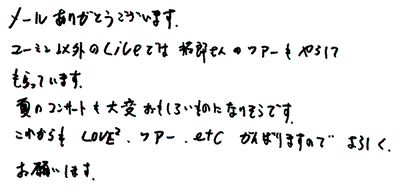 メールありがとうございます.
ユーミン以外のLiveでは 拓郎さんのツアーも やらして
もらっています.
夏のコンサートも大変おもしろいものになりそうです.
これからも LOVE². ツアー. etc がんばりますので よろしく.
お願いします.